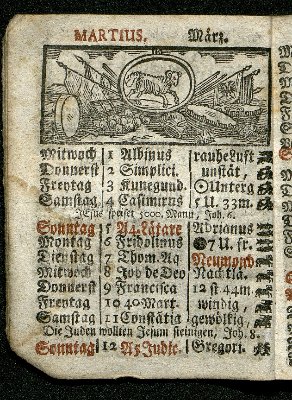 MARTIUS. März.
Mitwoch 1 Albinus rauhe Luft
Donnerst 2 Simplici. unstät,
Freytag 3 Kunegund. ☉ Unterg
Samstag 4 Casimirus 5 U. 33m.
JEsus speiset 5000. Mann, Joh. 6.
Sonntag 5 A4. Lätare Adrianus
Montag 6 Fridolinus 7 U. fr.
Dienstag 7 Thom. Aq Neumonch
Mitwoch 8 Joh de Deo Nacht kla.
Donnerst 9 Francisca 12 st 44m.
Freytag 10 40 Mart. windig,
Samstag 11 Constätia gewölkig,
Die Juden wollten Jesum steinigen, Joh. 8.
Sonntag 12 A5 Judic. Gregori.